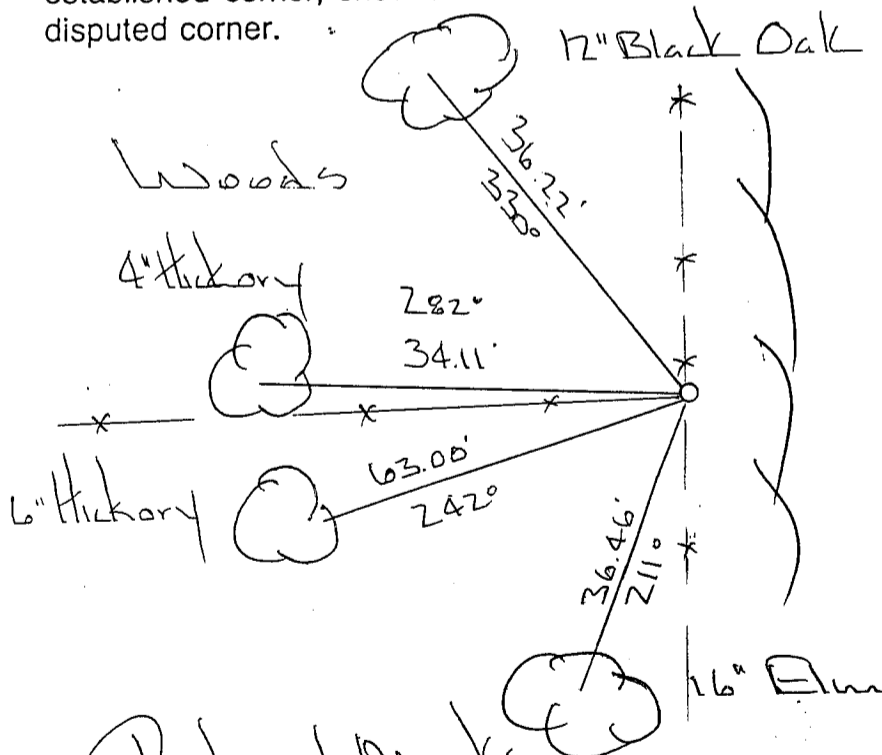 disputed corner.
12" Black Oak
36.22'
330°
Woods
4" Hickory
282°
34.11'
63.00'
242°
6" Hickory
36.46'
211°
16" Elm